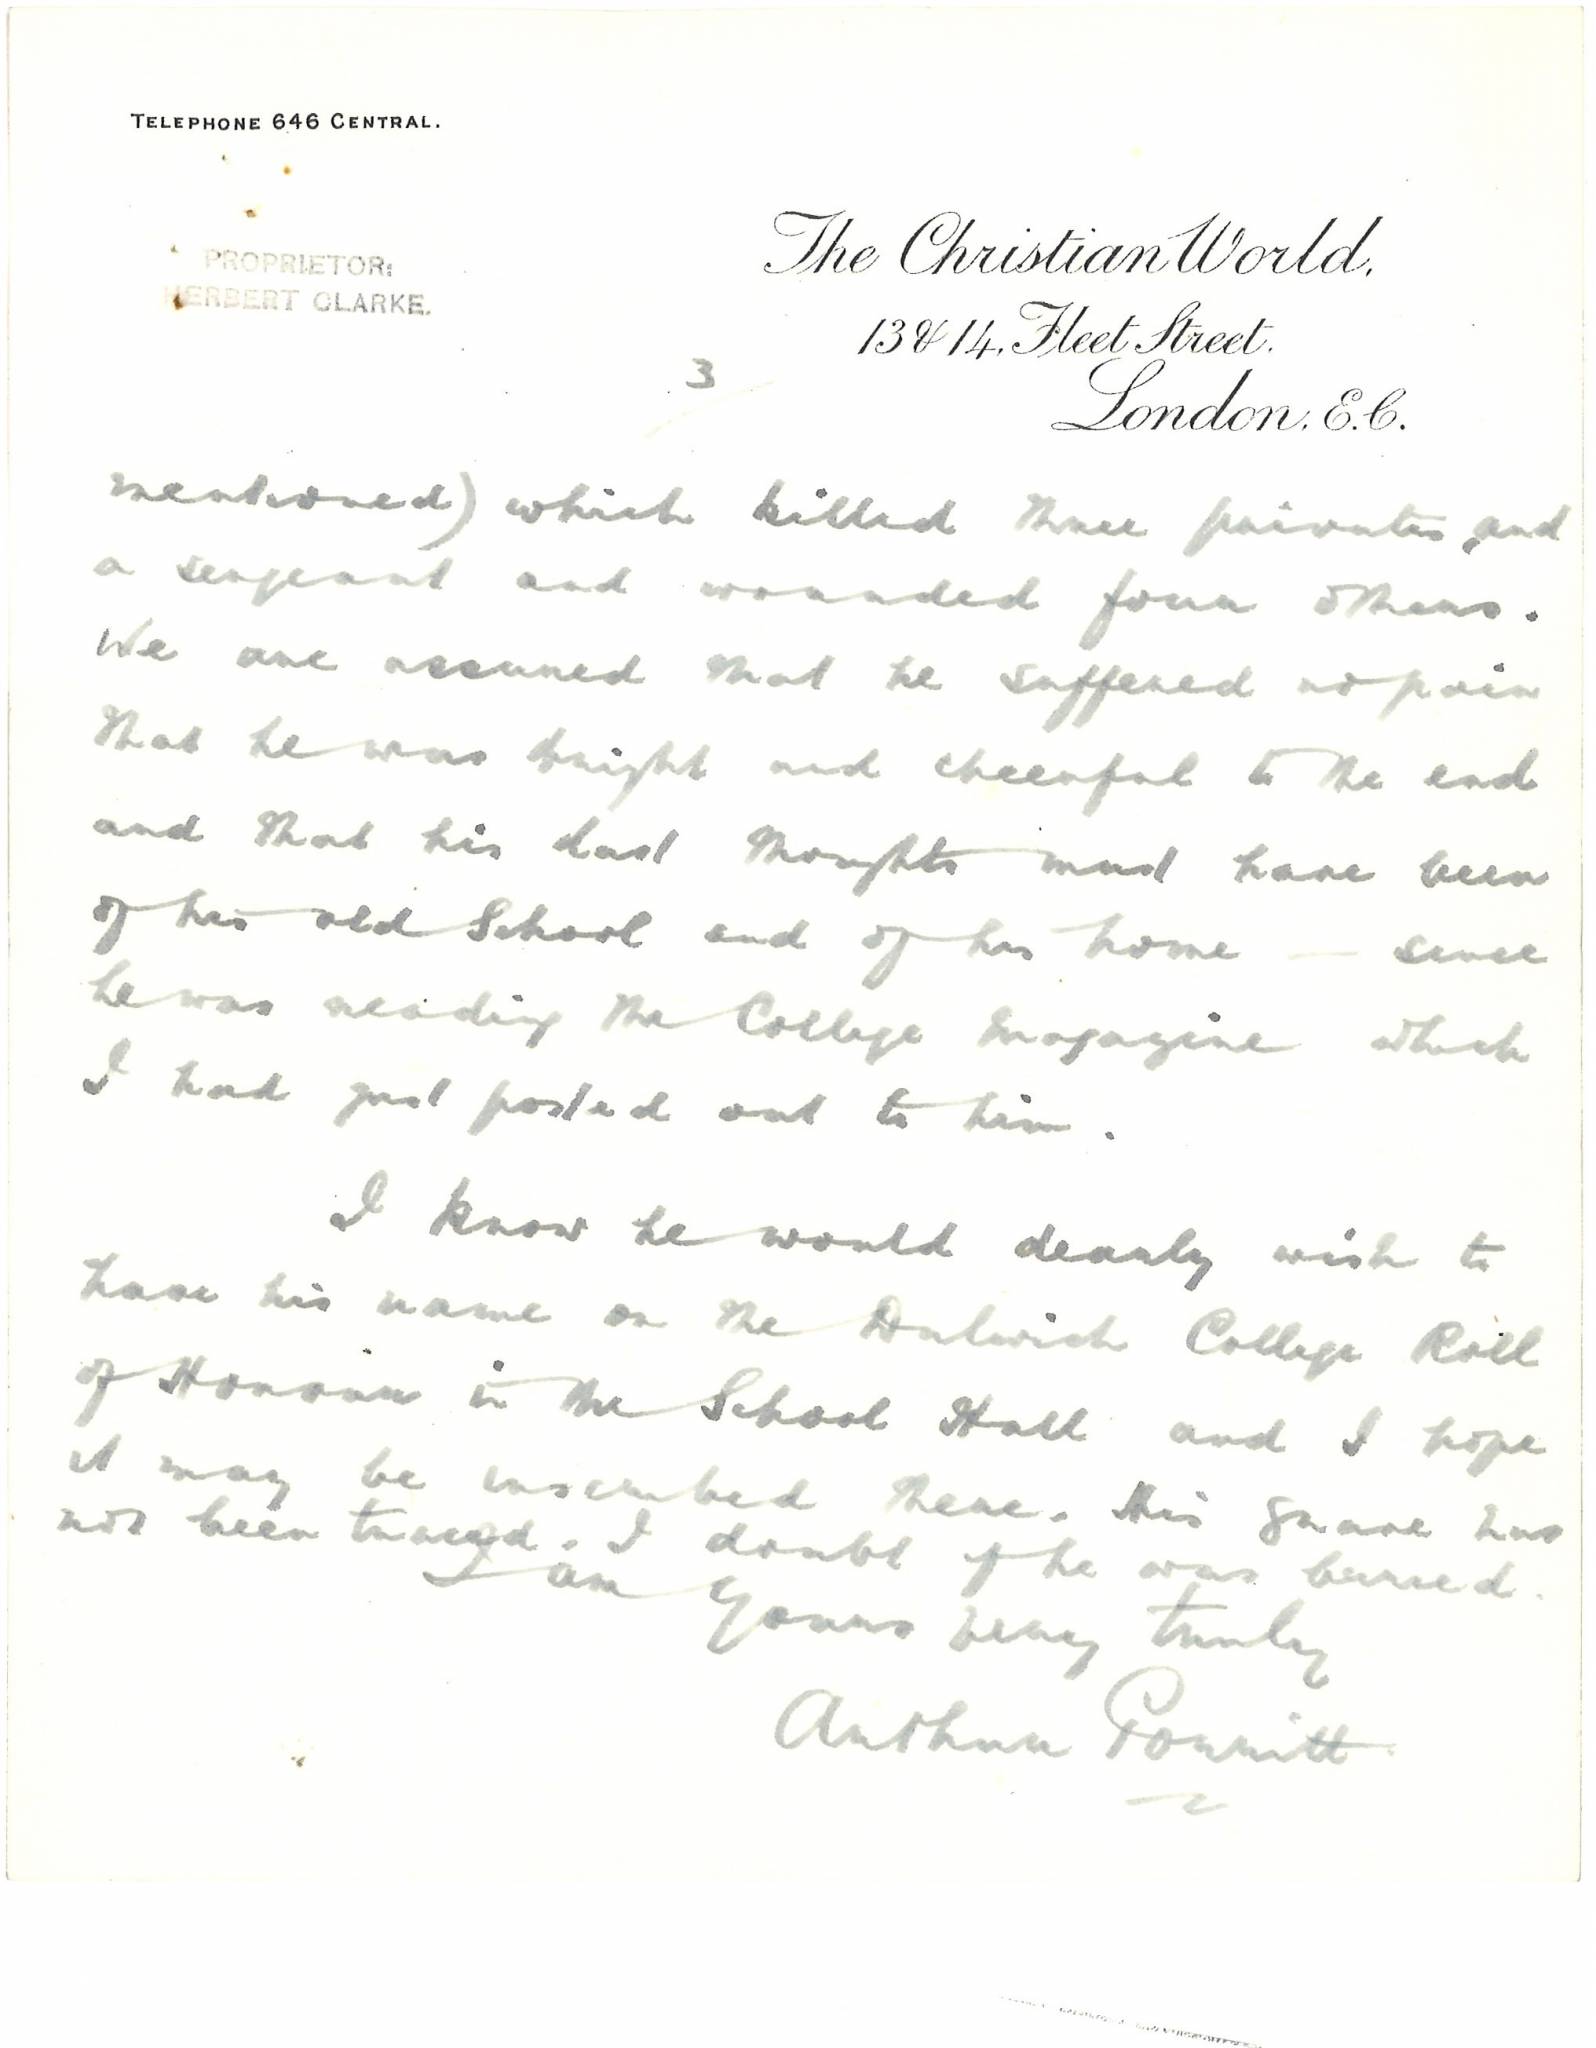 TELEPHONE 646 CENTRAL.
PROPRIETOR:
HERBERT CLARKE.
The Christian World,
13 & 14, Fleet Street.
London, E.C.
3
mentioned) which killed three privates and
a sergeant and wounded four others.
We are assured that he suffered no pain
that he was bright and cheerful to the end
and that his last thoughts must have been
of his old School and of his home — since
he was reading the College Magazine which
I had just posted out to him.
I know he would dearly wish to
have his name on the Dulwich College Roll
of Honour in the School Hall and I hope
it may be inscribed there. His grave has
not been traced. I doubt if he was buried.
I am
Yours very truly
Arthur Porritt